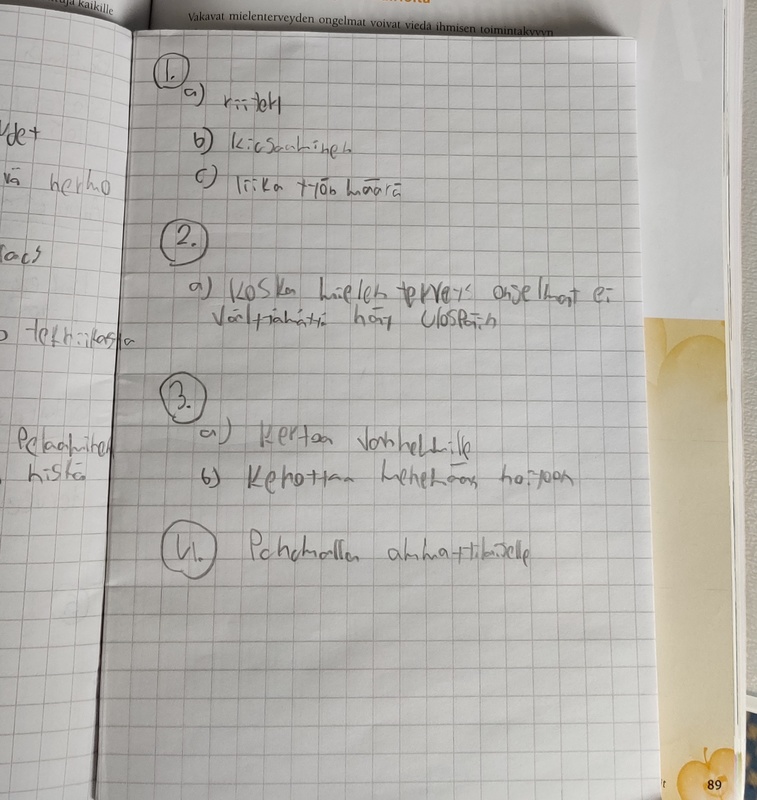 kaikille
Vakavat mielenterveyden ongelmat voivat viedä ihmisen toimintakyvyn
vä hermo
tekniikasta
Pelaaminen
1.
a) riidat
b) kiusaaminen
c) liika työn määrä
2.
a) Koska mielen terveys ongelmat ei
välttämättä näy ulospäin
3.
a) Kertoa vanhemmille
b) Kehottaa menemään hoitoon
4. Puhumalla ammattilaiselle
89